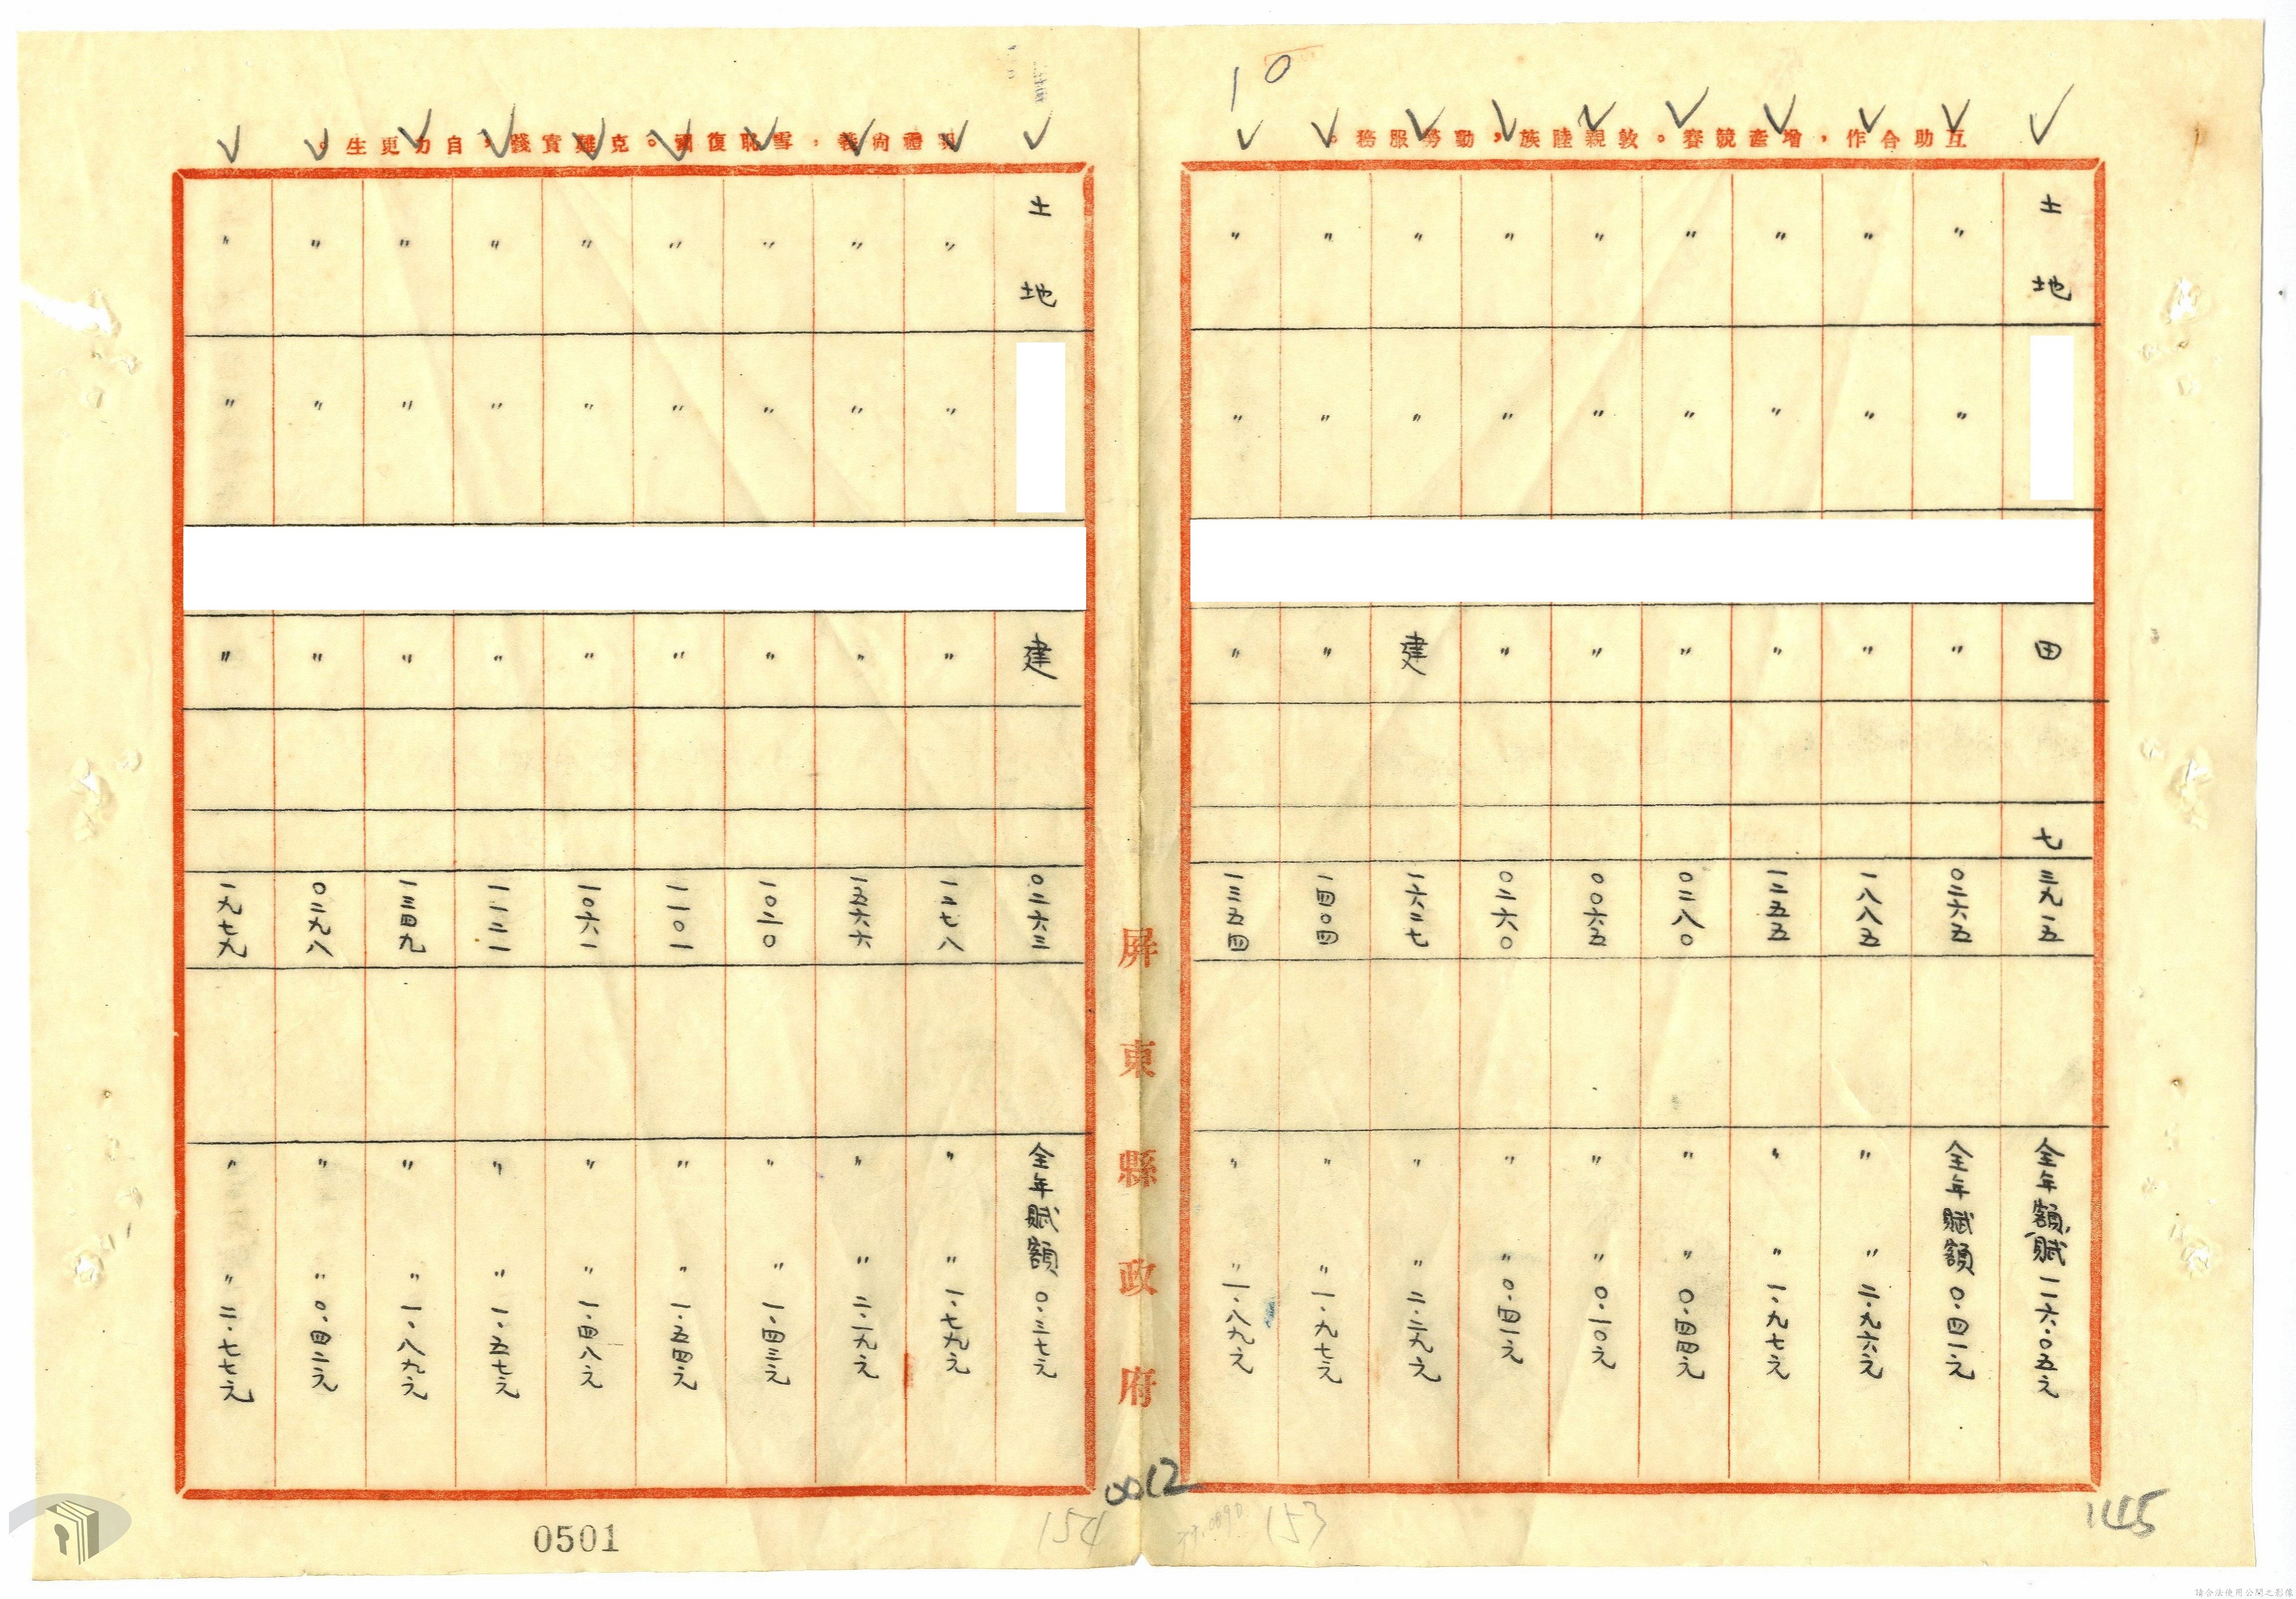 10
互助合作，增產競賽。敦親睦族，勤勞服務。
土地 田 七 三九一五 全年額賦一六.〇五元
〃 〃 〃 〇二六五 全年賦額〇.四一元
〃 〃 〃 一八八五 〃 〃 二.九六元
〃 〃 〃 一二五五 〃 〃 一.九七元
〃 〃 〃 〇二八〇 〃 〃 〇.四四元
〃 〃 〃 〇〇六五 〃 〃 〇.一〇元
〃 〃 〃 〇二六〇 〃 〃 〇.四一元
〃 〃 建 一六二七 〃 〃 二.二九元
〃 〃 〃 一四〇四 〃 〃 一.九七元
〃 〃 〃 一三五四 〃 〃 一.八九元
145
153
屏東縣政府
0012
明禮尚義，雪恥復國。克難實踐，自力更生。
土地 建 〇二六三 全年賦額〇.三七元
〃 〃 〃 一二七八 〃 〃 一.七九元
〃 〃 〃 一五六六 〃 〃 二.一九元
〃 〃 〃 一〇二〇 〃 〃 一.四三元
〃 〃 〃 一一〇一 〃 〃 一.五四元
〃 〃 〃 一〇六一 〃 〃 一.四八元
〃 〃 〃 一一二一 〃 〃 一.五七元
〃 〃 〃 一三四九 〃 〃 一.八九元
〃 〃 〃 〇二九八 〃 〃 〇.四二元
〃 〃 〃 一九七九 〃 〃 二.七七元
154
0501
請合法使用公開之影像